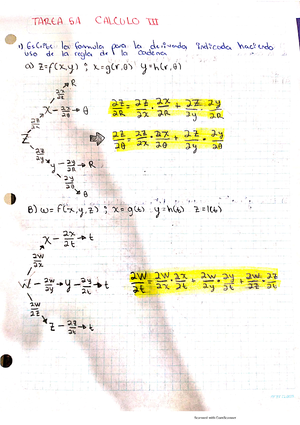 TAREA 6.1 CALCULO III
1) Escribe la formula para la derivada indicada haciendo
uso de la regla de la cadena
a) z=f(x,y) ; x=g(r,θ) y=h(r,θ)
∂z/∂x ∂x/∂R → R
x - ∂x/∂θ → θ
∂z/∂R = ∂z/∂x · ∂x/∂R + ∂z/∂y · ∂y/∂R
Z
∂z/∂θ = ∂z/∂x · ∂x/∂θ + ∂z/∂y · ∂y/∂θ
∂z/∂y y - ∂y/∂R → R
∂y/∂θ
θ
B) w=f(x,y,z) ; x=g(t) y=h(t) z=l(t)
x - ∂x/∂t → t
∂w/∂x
W - ∂w/∂y → y - ∂y/∂t → t
∂w/∂t = ∂w/∂x · ∂x/∂t + ∂w/∂y · ∂y/∂t + ∂w/∂z · ∂z/∂t
∂w/∂z
z - ∂z/∂t → t
Scanned with CamScanner